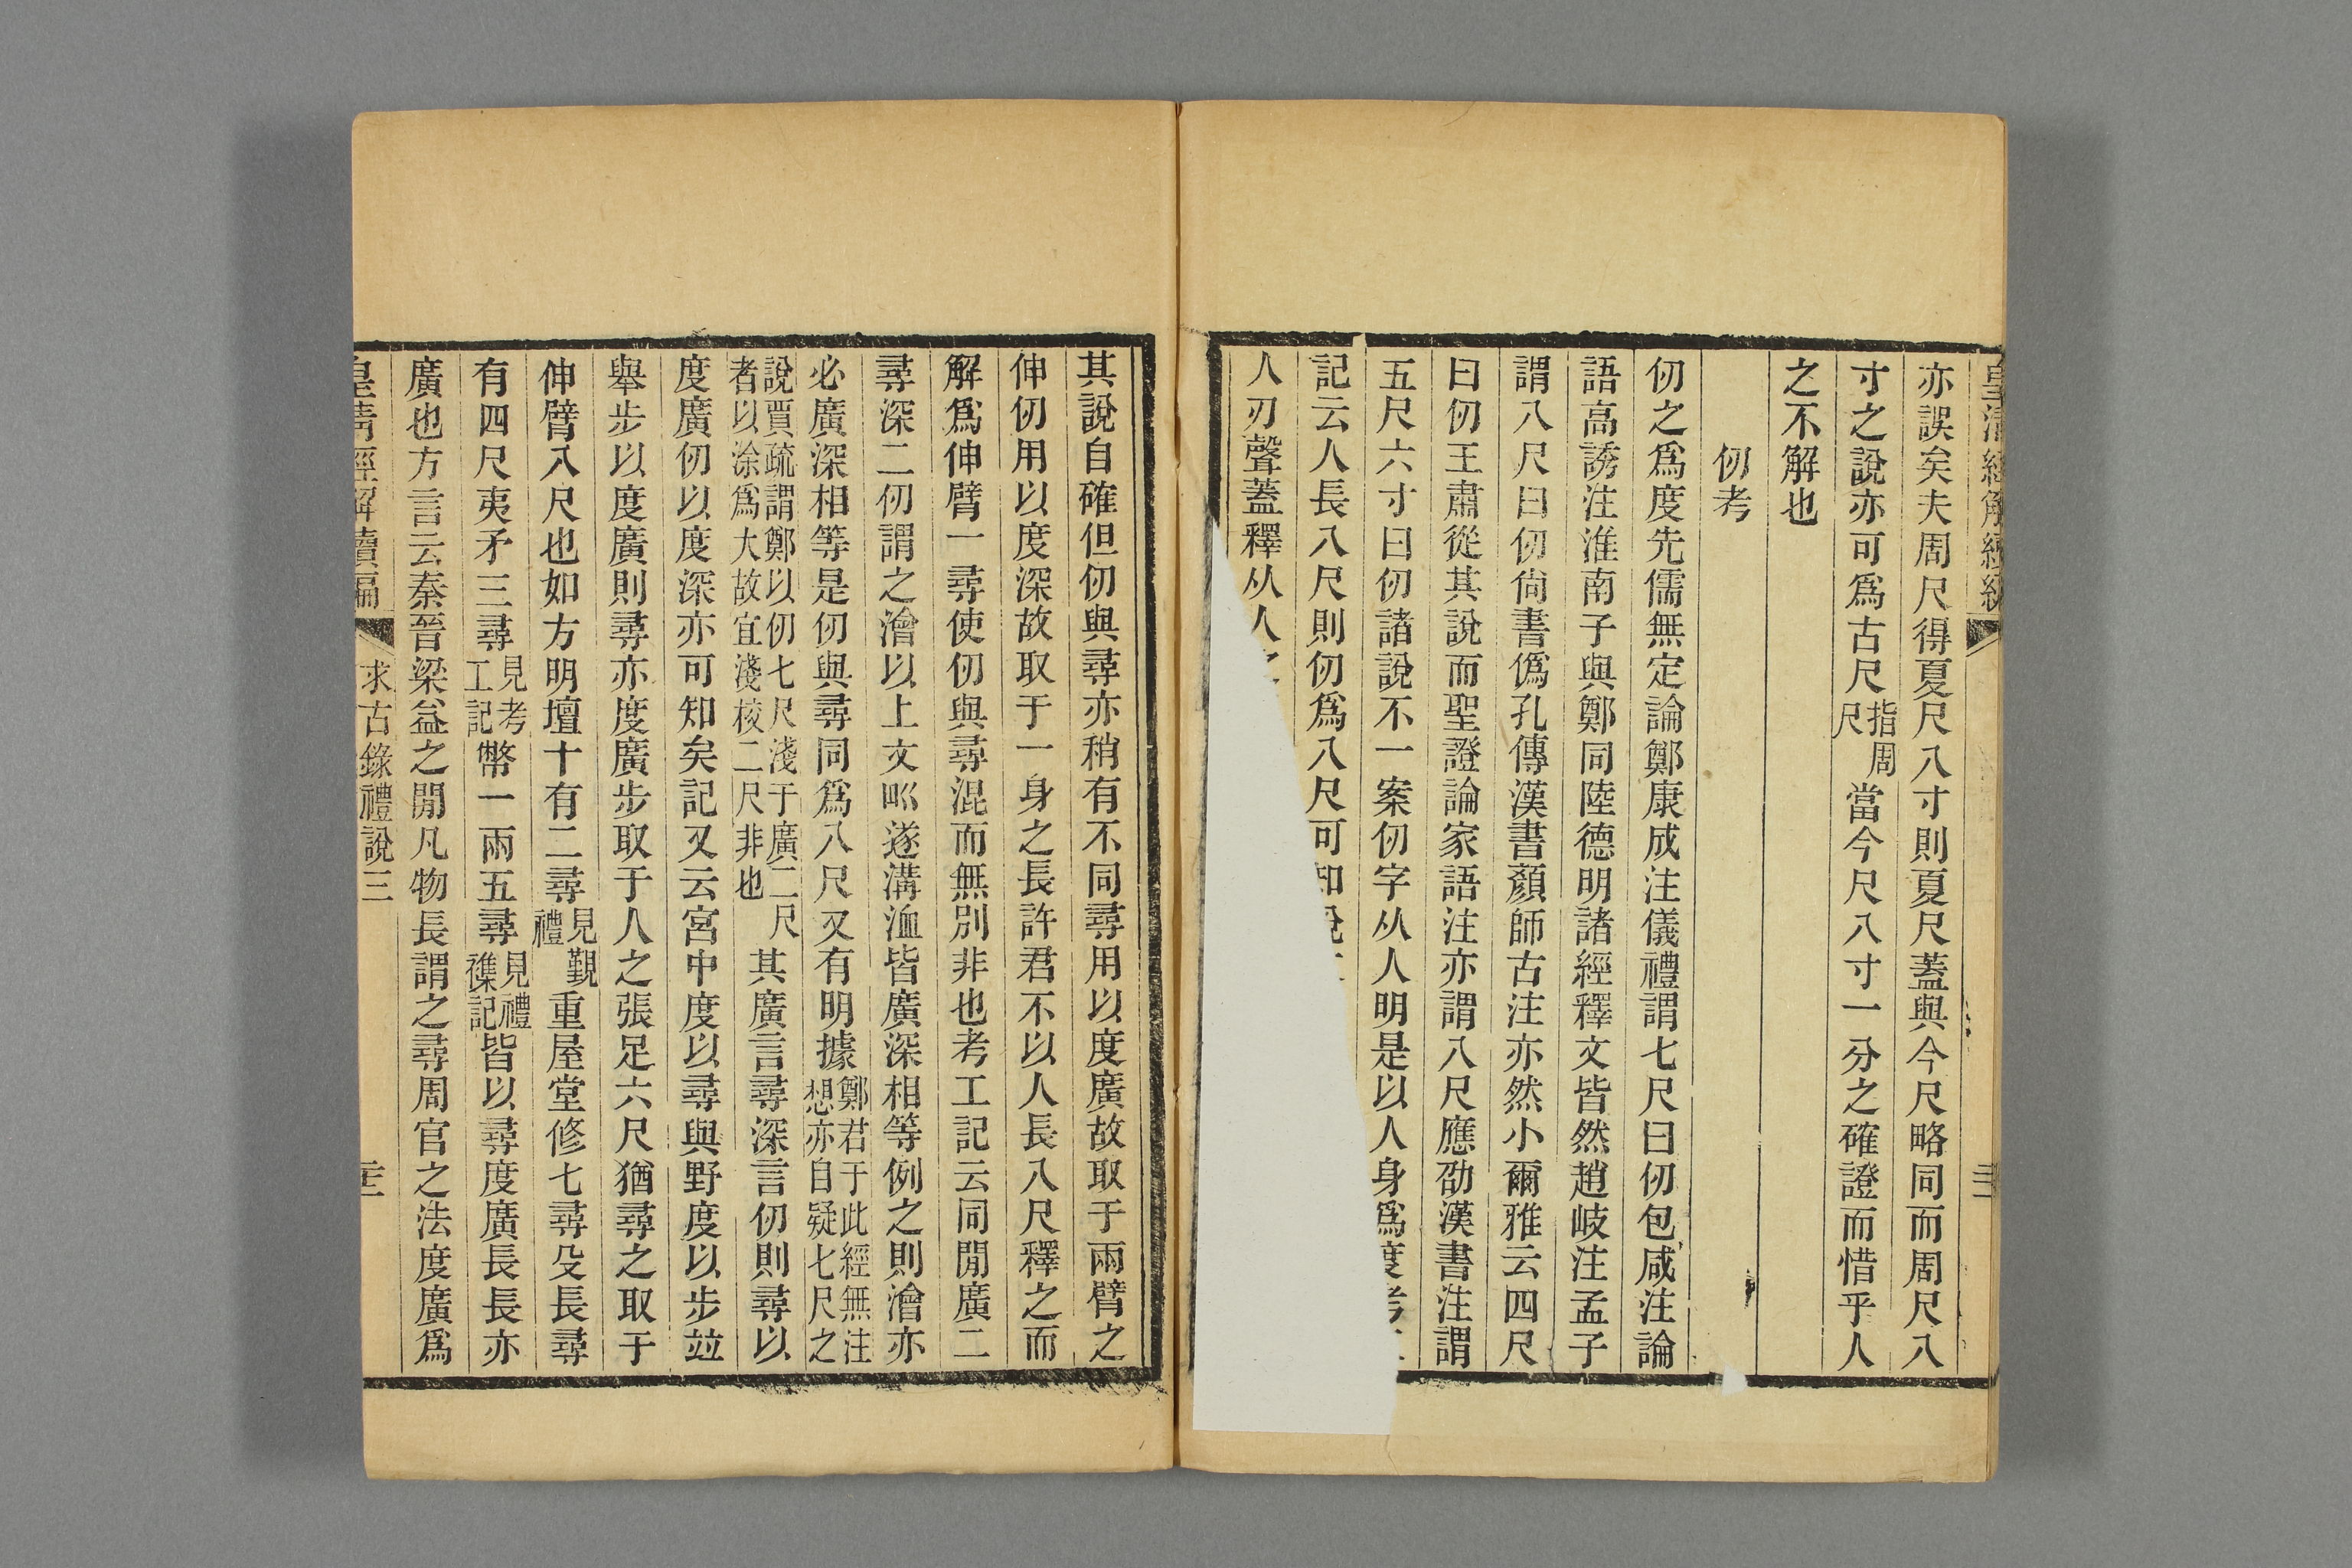 亦誤矣夫周尺得夏尺八寸則夏尺蓋與今尺略同而周尺八
寸之說亦可爲古尺指周尺當今尺八寸一分之確證而惜乎人
之不解也
仞考
仞之爲度先儒無定論鄭康成注儀禮謂七尺曰仞包咸注論
語高誘注淮南子與鄭同陸德明諸經釋文皆然趙岐注孟子
謂八尺曰仞尙書僞孔傳漢書顏師古注亦然小爾雅云四尺
曰仞王肅從其說而聖證論家語注亦謂八尺應劭漢書注謂
五尺六寸曰仞諸說不一案仞字从人明是以人身爲度考
記云人長八尺則仞爲八尺可知說
人刃聲蓋釋从人之
其說自確但仞與尋亦稍有不同尋用以度廣故取于兩臂之
伸仞用以度深故取于一身之長許君不以人長八尺釋之而
解爲伸臂一尋使仞與尋混而無別非也考工記云同閒廣二
尋深二仞謂之澮以上文𤰝遂溝洫皆廣深相等例之則澮亦
必廣深相等是仞與尋同爲八尺又有明據鄭君于此經無注想亦自疑七尺之
說賈疏謂鄭以仞七尺淺于廣二尺者以涂爲大故宜淺校二尺非也其廣言尋深言仞則尋以
度廣仞以度深亦可知矣記又云宮中度以尋與野度以步竝
舉步以度廣則尋亦度廣步取于人之張足六尺猶尋之取于
伸臂八尺也如方明壇十有二尋見覲禮重屋堂修七尋殳長尋
有四尺夷矛三尋見考工記幣一兩五尋見禮襍記皆以尋度廣長長亦
廣也方言云秦晉梁益之閒凡物長謂之尋周官之法度廣爲
皇清經解續編
求古錄禮說三